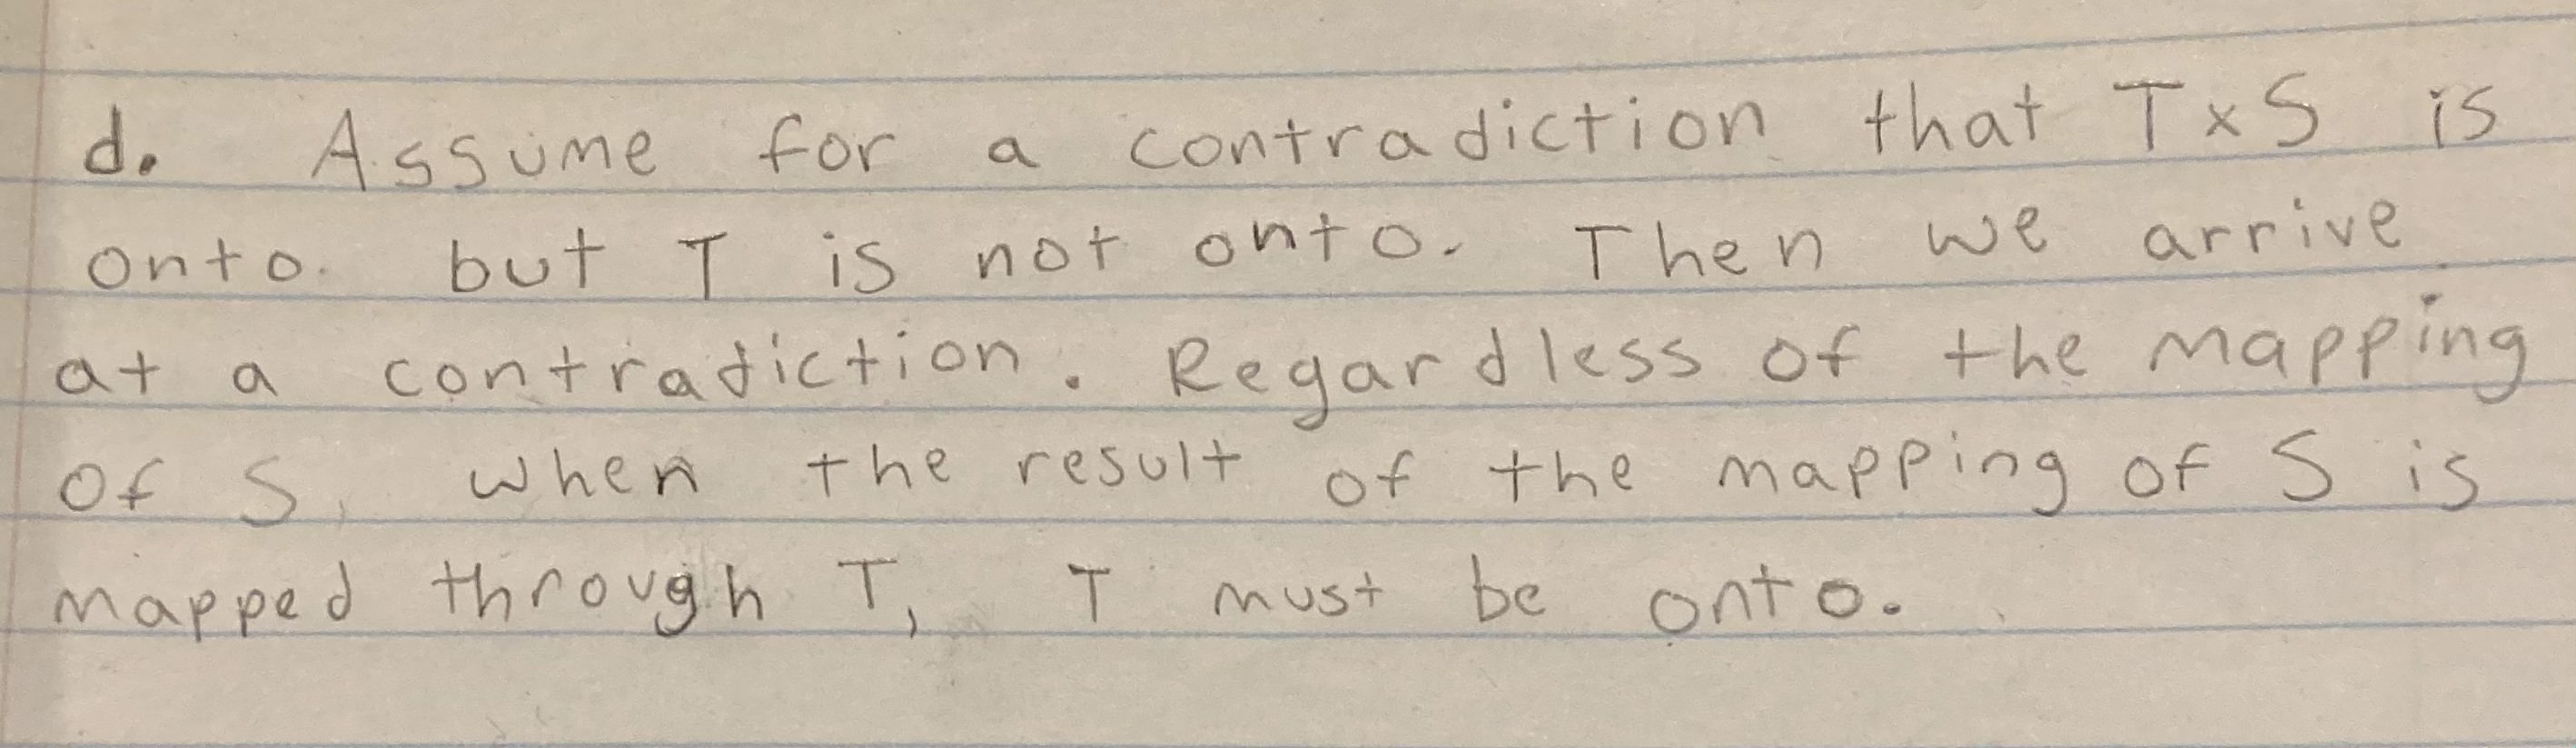 d. Assume for a contradiction that T x S is
onto but T is not onto. Then we arrive
at a contradiction. Regardless of the mapping
of S, when the result of the mapping of S is
mapped through T, T must be onto.